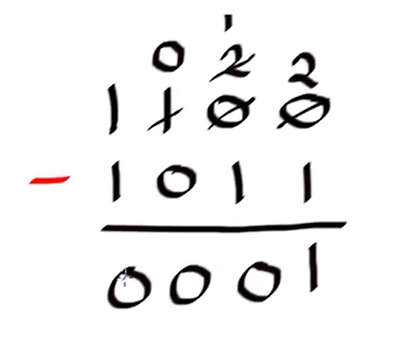 1
0 2 2
1 1 0 0
- 1 0 1 1
0 0 0 1